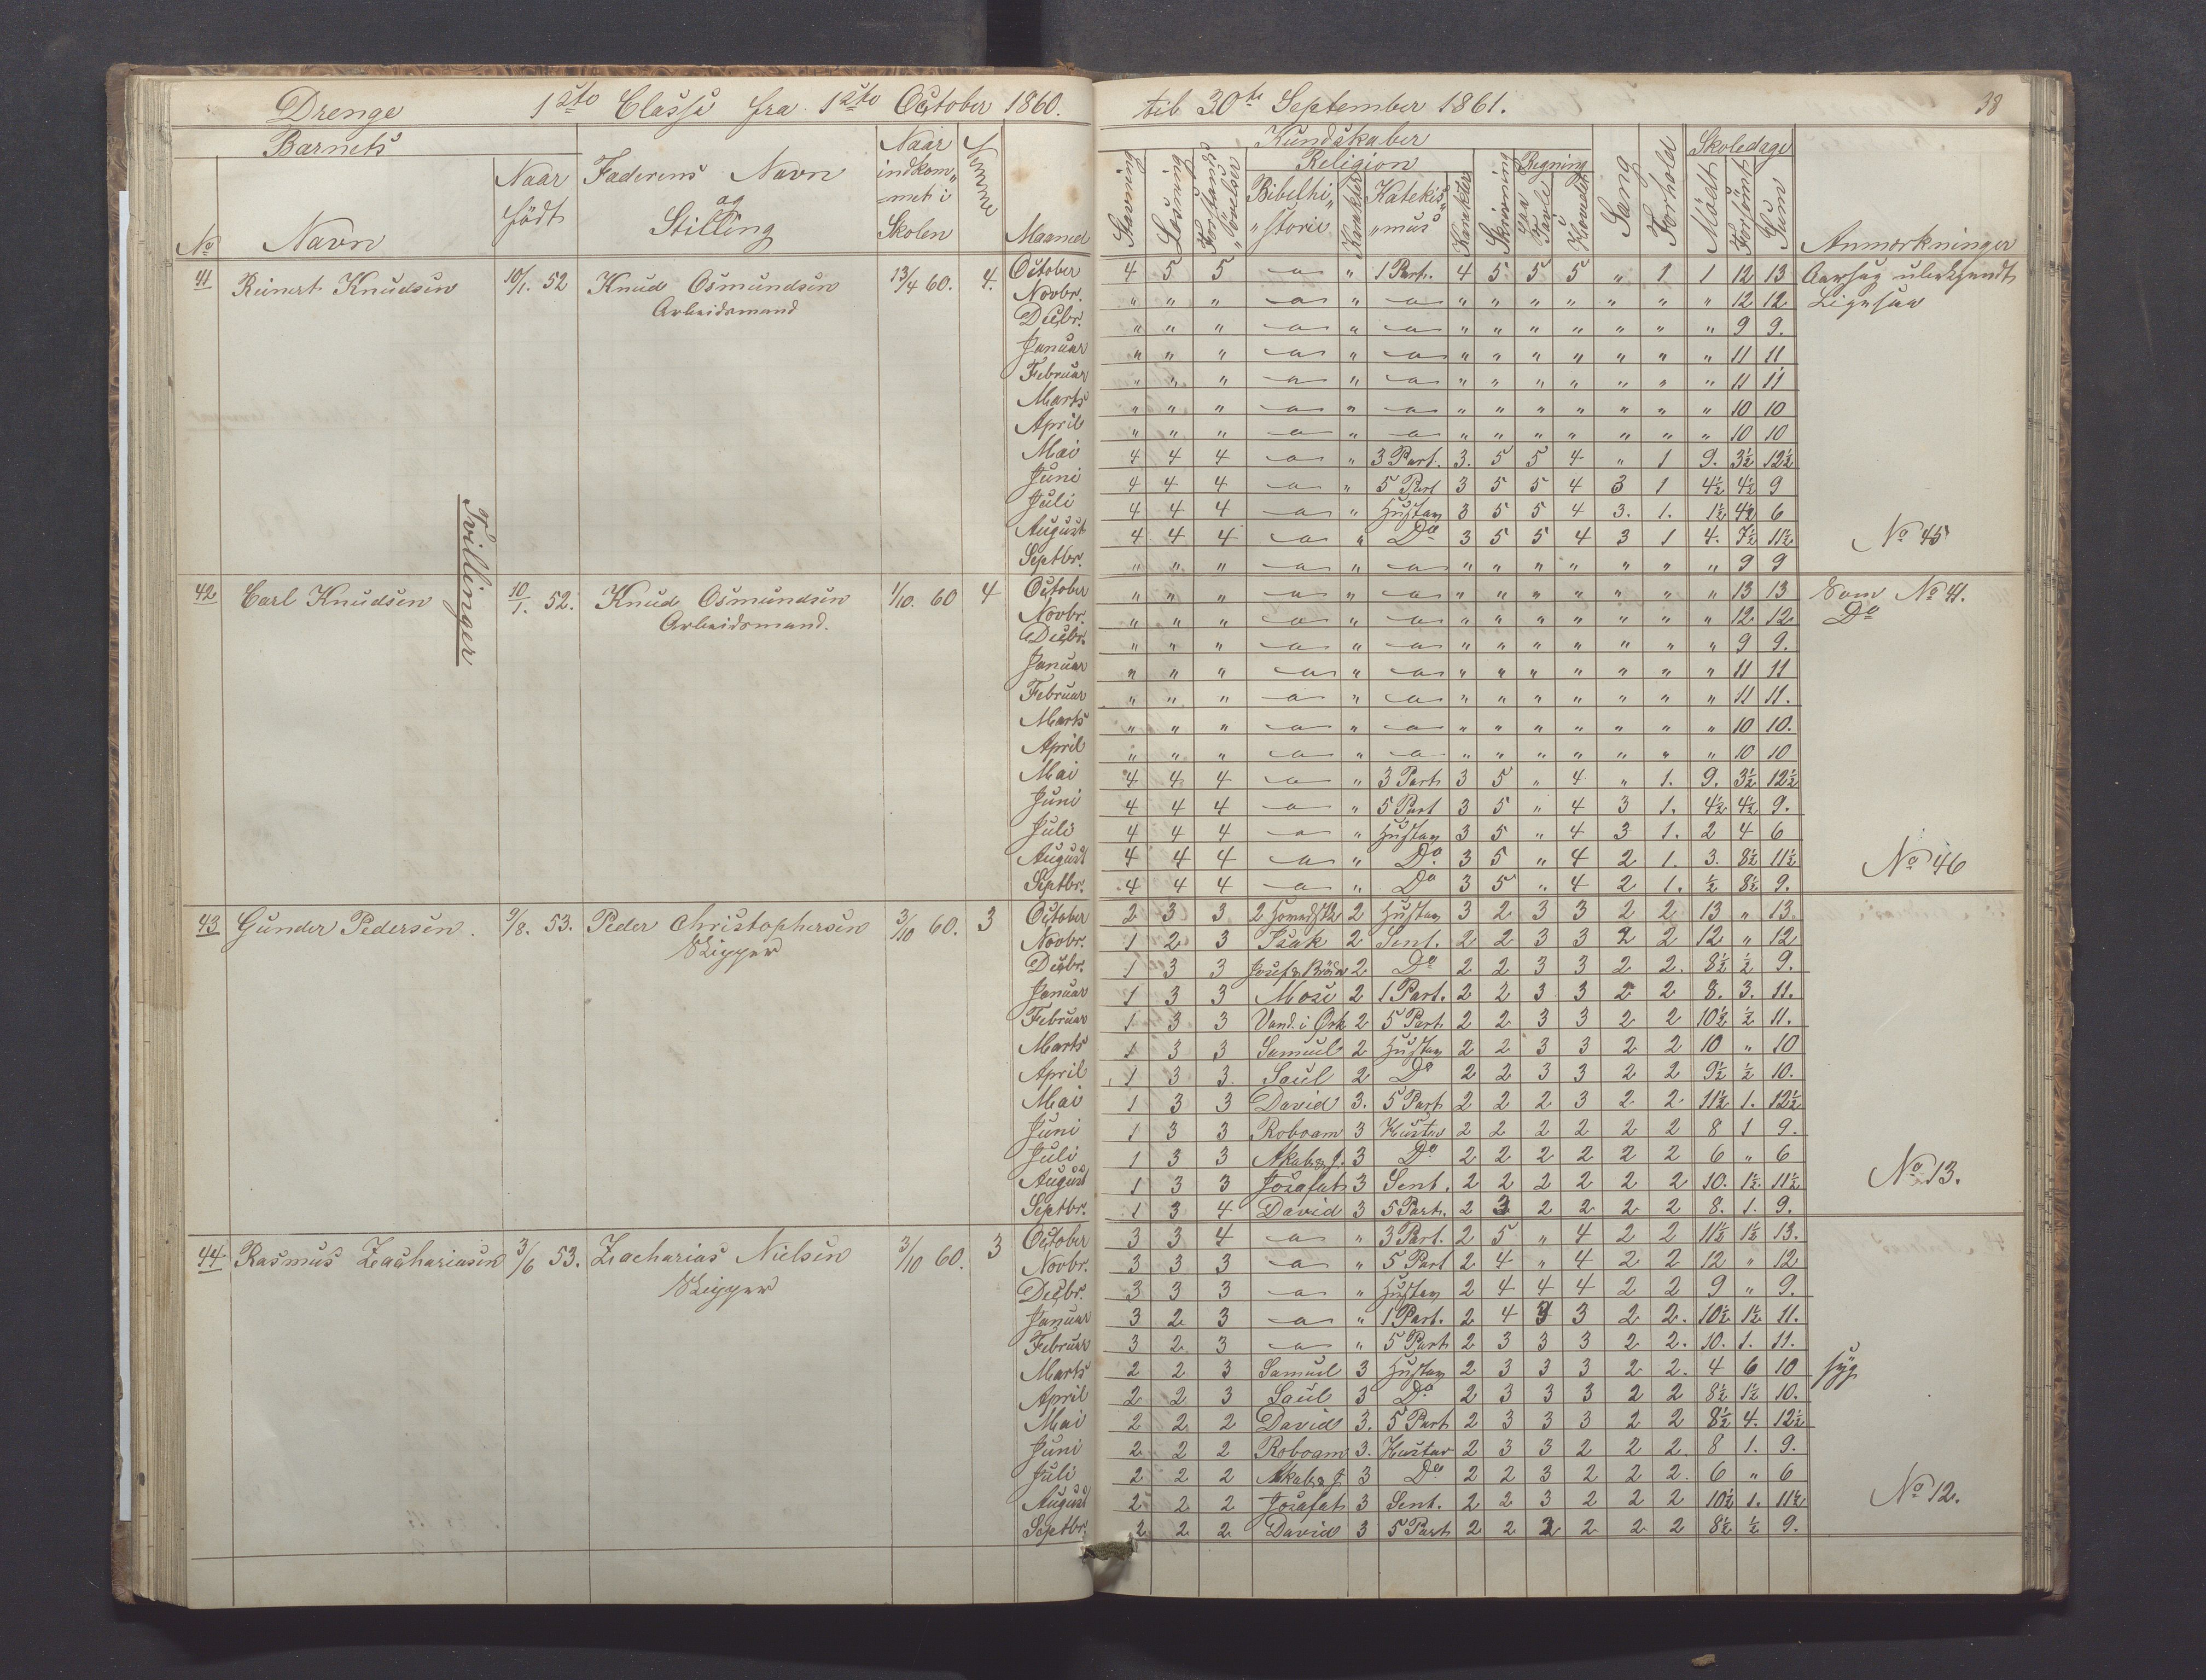 Drenge 1ste Classe fra 1ste October 1860. til 30te September 1861. 38
Barnets Naar Kundskaber Skoledage
Faderens Navn indkom„ Nemme Religion Regning
Naar og „met i Stavning Læsning Forstands „øvelser Bibelhi„ Karakter Katekis„ Karakter Skrivning Paa Tavle Hovedet Sang Forhold Mødt Forsømt Sum
№ Navn født Stilling Skolen Maaned „storie „mus Anmærkninger
41 Reinert Knudsen 10/1. 52 Knud Osmundsen 13/4 60. 4. October 4 5 5 „ 1 Part. 4 5 5 5 „ 1 1 12 13
Arbeidsmand Novbr. „ „ „ „ „ „ „ „ „ „ „ 12 12 Ligesaa
Decbr. „ „ „ „ „ „ „ „ „ „ „ 9 9.
Januar „ „ „ „ „ „ „ „ „ „ „ 11 11
Februar „ „ „ „ „ „ „ „ „ „ „ 11 11
Marts „ „ „ „ „ „ „ „ „ „ „ 10 10
April „ „ „ „ „ „ „ „ „ „ „ 10 10
Mai 4 4 4 „ 3 Part. 3. 5 5 4 „ 1 9. 3½ 12½
Juni 4 4 4 „ 5 Part 3 5 5 4 3 1 4½ 4½ 9
Juli 4 4 4 „ Hustav 3 5 5 4 3. 1. 1½ 4½ 6
August 4 4 4 „ Do 3 5 5 4 3 1 4. 7½ 11½ No 45
Septbr. „ „ „ „ „ „ „ „ „ „ „ 9 9
Tvillinger
42 Carl Knudsen 10/1. 52. Knud Osmundsen 1/10. 60 4 October „ „ „ „ „ „ „ „ „ „ „ 13 13 Som No 41.
Arbeidsmand. Novbr. „ „ „ „ „ „ „ „ „ „ „ 12 12 Do
Decbr. „ „ „ „ „ „ „ „ „ „ „ 9 9.
Januar „ „ „ „ „ „ „ „ „ „ „ 11 11
Februar „ „ „ „ „ „ „ „ „ „ „ 11 11.
Marts „ „ „ „ „ „ „ „ „ „ „ 10 10.
April „ „ „ „ „ „ „ „ „ „ „ 10 10
Mai 4 4 4 „ 3 Part 3 5 „ 4 „ 1. 9. 3½ 12½
Juni 4 4 4 „ 5 Part 3 5 „ 4 3 1. 4½ 4½ 9.
Juli 4 4 4 „ Hustav 3 5 „ 4 3 1. 2 4 6
August 4 4 4 „ Do. 3 5 „ 4 2 1. 3. 8½ 11½ No 46
Septbr. 4 4 4 „ Do 3 5 „ 4 2 1. ½ 8½ 9.
43 Gunder Pedersen. 9/8. 53. Peder Christophersen 3/10 60. 3 October 2 3 3 2 Hustav 3 2 3 3 2 2 13 „ 13.
Skipper Novbr. 1 2 3 Isak 2 Sent. 2 2 3 3 2 2 12 „ 12
Decbr. 1 3 3 Josef & Brødre 2 Do 2 2 3 3 2 2. 8½ ½ 9.
Januar 1 3 3 Mose 2 1 Part. 2 2 3 3 2 2 8. 3. 11.
Februar 1 3 3 Vand. i Ørk 2 5 Part. 2 2 3 3 2 2 10½ ½ 11.
Marts 1 3 3 Samuel 2 Hustav 2 2 3 3 2 2 10 „ 10
April 1 3 3. Saul 2 Do 2 2 3 3 2 2 9½ ½ 10.
Mai 1 3 3 David 3. 5 Part 2 2 2 3 2 2 11½ 1. 12½
Juni 1 3 3 Roboam 3 Hustav 2 2 2 2 2 2 8 1 9.
Juli 1 3 3 Akab & J. 3 Do 2 2 2 2 2 2 6 „ 6
August 1 3 3 Josafat 3 Sent. 2 2 2 2 2 2 10. 1½ 11½ No 13.
Septbr. 1 3 4 David 3 5 Part. 2 3 2 2 2 2 8. 1. 9.
44 Rasmus Zachariasen 3/6 53. Zacharias Nielsen 3/10 60. 3 October 3 3 4 „ 3 Part. 2 5 „ 4 2 2 11½ 1½ 13.
Skipper Novbr. 3 3 3 „ 5 Part 2 4 „ 4 2 2 12 „ 12
Decbr. 3 3 3 „ Hustav 2 4 4 4 2 2 9 „ 9.
Januar 3 2 3 „ 1 Part. 2 4 3 3 2 2. 10½ 1½ 11.
Februar 3 2 3 „ 5 Part 2 3 3 3 2 2. 10. 1. 11.
Marts 2 2 3 Samuel 3 Hustav 2 3 3 3 2 2. 4 6 10 syg
April 2 2 3 Saul 3 Do 2 3 3 3 2 2 8½ 1½ 10.
Mai 2 2 2 David 3. 5 Part 2 3 3 3 2 2 8½ 4. 12½
Juni 2 2 2 Roboam 3. Hustav 2 3 3 2 2 2 8 1. 9.
Juli 2 2 2 Akab & J 3 Do 2 2 3 2 2 2. 6 „ 6
August 2 2 2 Josafat 3 Sent. 2 2 3 2 2 2 10½ 1. 11½ No 12.
Septbr. 2 2 2 David 3 5 Part 2 2 2 2 2 2 8½ ½ 9.